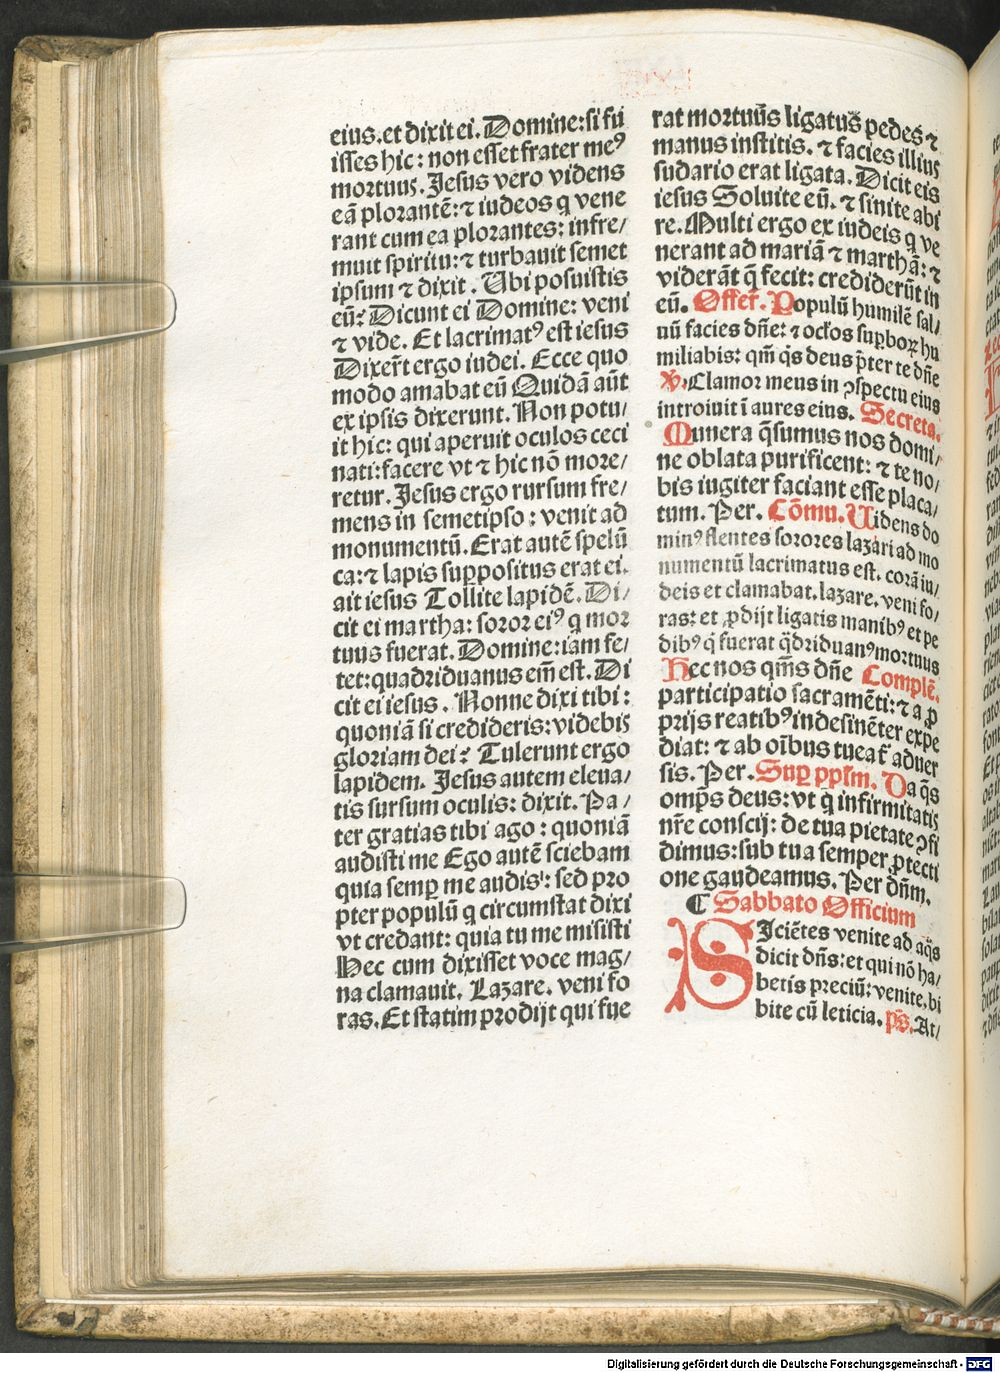 eius. et dixit ei. Domine: si fu
isses hic: non esset frater meꝰ
mortuus. Jesus vero videns
eā plorantē: ⁊ iudeos q vene
rant cum ea plorantes: infre/
muit spiritu: ⁊ turbauit semet
ipsum ⁊ dixit. Ubi posuistis
eū: Dicunt ei Domine: veni
⁊ vide. Et lacrimatꝰ est iesus
Dixer̄t ergo iudei. Ecce quo
modo amabat eū Quidā aūt
ex ipsis dixerunt. Non potu/
it hic: qui aperuit oculos ceci
nati: facere vt ⁊ hic nō more/
retur. Jesus ergo rursum fre/
mens in semetipso: venit ad
monumentū. Erat autē spelū
ca: ⁊ lapis suꝑpositus erat ei.
ait iesus Tollite lapidē. Di/
cit ei martha: soror eiꝰ q mor
tuus fuerat. Domine: iam fe/
tet: quadriduanus em̄ est. Di
cit ei iesus. Nonne dixi tibi:
quoniā si credideris: videbis
gloriam dei: Tulerunt ergo
lapidem. Jesus autem eleua/
tis sursum oculis: dixit. Pa/
ter gratias tibi ago: quoniā
audisti me Ego autē sciebam
quia semꝑ me audis: sed pro
pter populū q circumstat dixi
vt credant: quia tu me misisti
Hec cum dixisset voce mag/
na clamauit. Lazare. veni fo
ras. Et statim prodijt qui fue
rat mortuus ligatus pedes ⁊
manus institis. ⁊ facies illius
sudario erat ligata. Dicit eis
iesus Soluite eū. ⁊ sinite abi
re. Multi ergo ex iudeis q ve
nerant ad mariā ⁊ marthā: ⁊
viderāt q̄ fecit: crediderūt in
eū. Offer̄. Populū humilē sal/
uū facies dn̄e: ⁊ oclos suꝑboꝝ hu
miliabis: qm̄ q̄s deus p̄ter te dn̄e
℣. Clamor meus in ꝯspectu eius
introiuit ī aures eius. Secreta.
Munera q̄sumus nos domi/
ne oblata purificent: ⁊ te no/
bis iugiter faciant esse placa/
tum. Per. Cōmu. Uidens do
minꝰ flentes sorores lazari ad mo
numentū lacrimatus est. corā iu/
deis et clamabat. lazare. veni fo/
ras: et ꝓdijt ligatis manibꝰ et pe
dibꝰ q̄ fuerat q̄driduanꝰ mortuus
Hec nos qm̄s dn̄e Complē.
participatio sacramēti: ⁊ a ꝓ
prijs reatibꝰ indesinēter expe
diat: ⁊ ab oībus tueat̄ aduer
sis. Per. Suꝑ pp̄lm. Da q̄s
omp̄s deus: vt q̄ infirmitatis
nr̄e conscij: de tua pietate ꝯfi
dimus: sub tua semper ꝓtecti
one gaudeamus. Per dn̄m.
¶ Sabbato Officium
SIciētes venite ad aq̄s
dicit dn̄s: et qui nō ha/
betis preciū: venite. bi
bite cū leticia. ps̄. At/
Digitalisierung gefördert durch die Deutsche Forschungsgemeinschaft - DFG